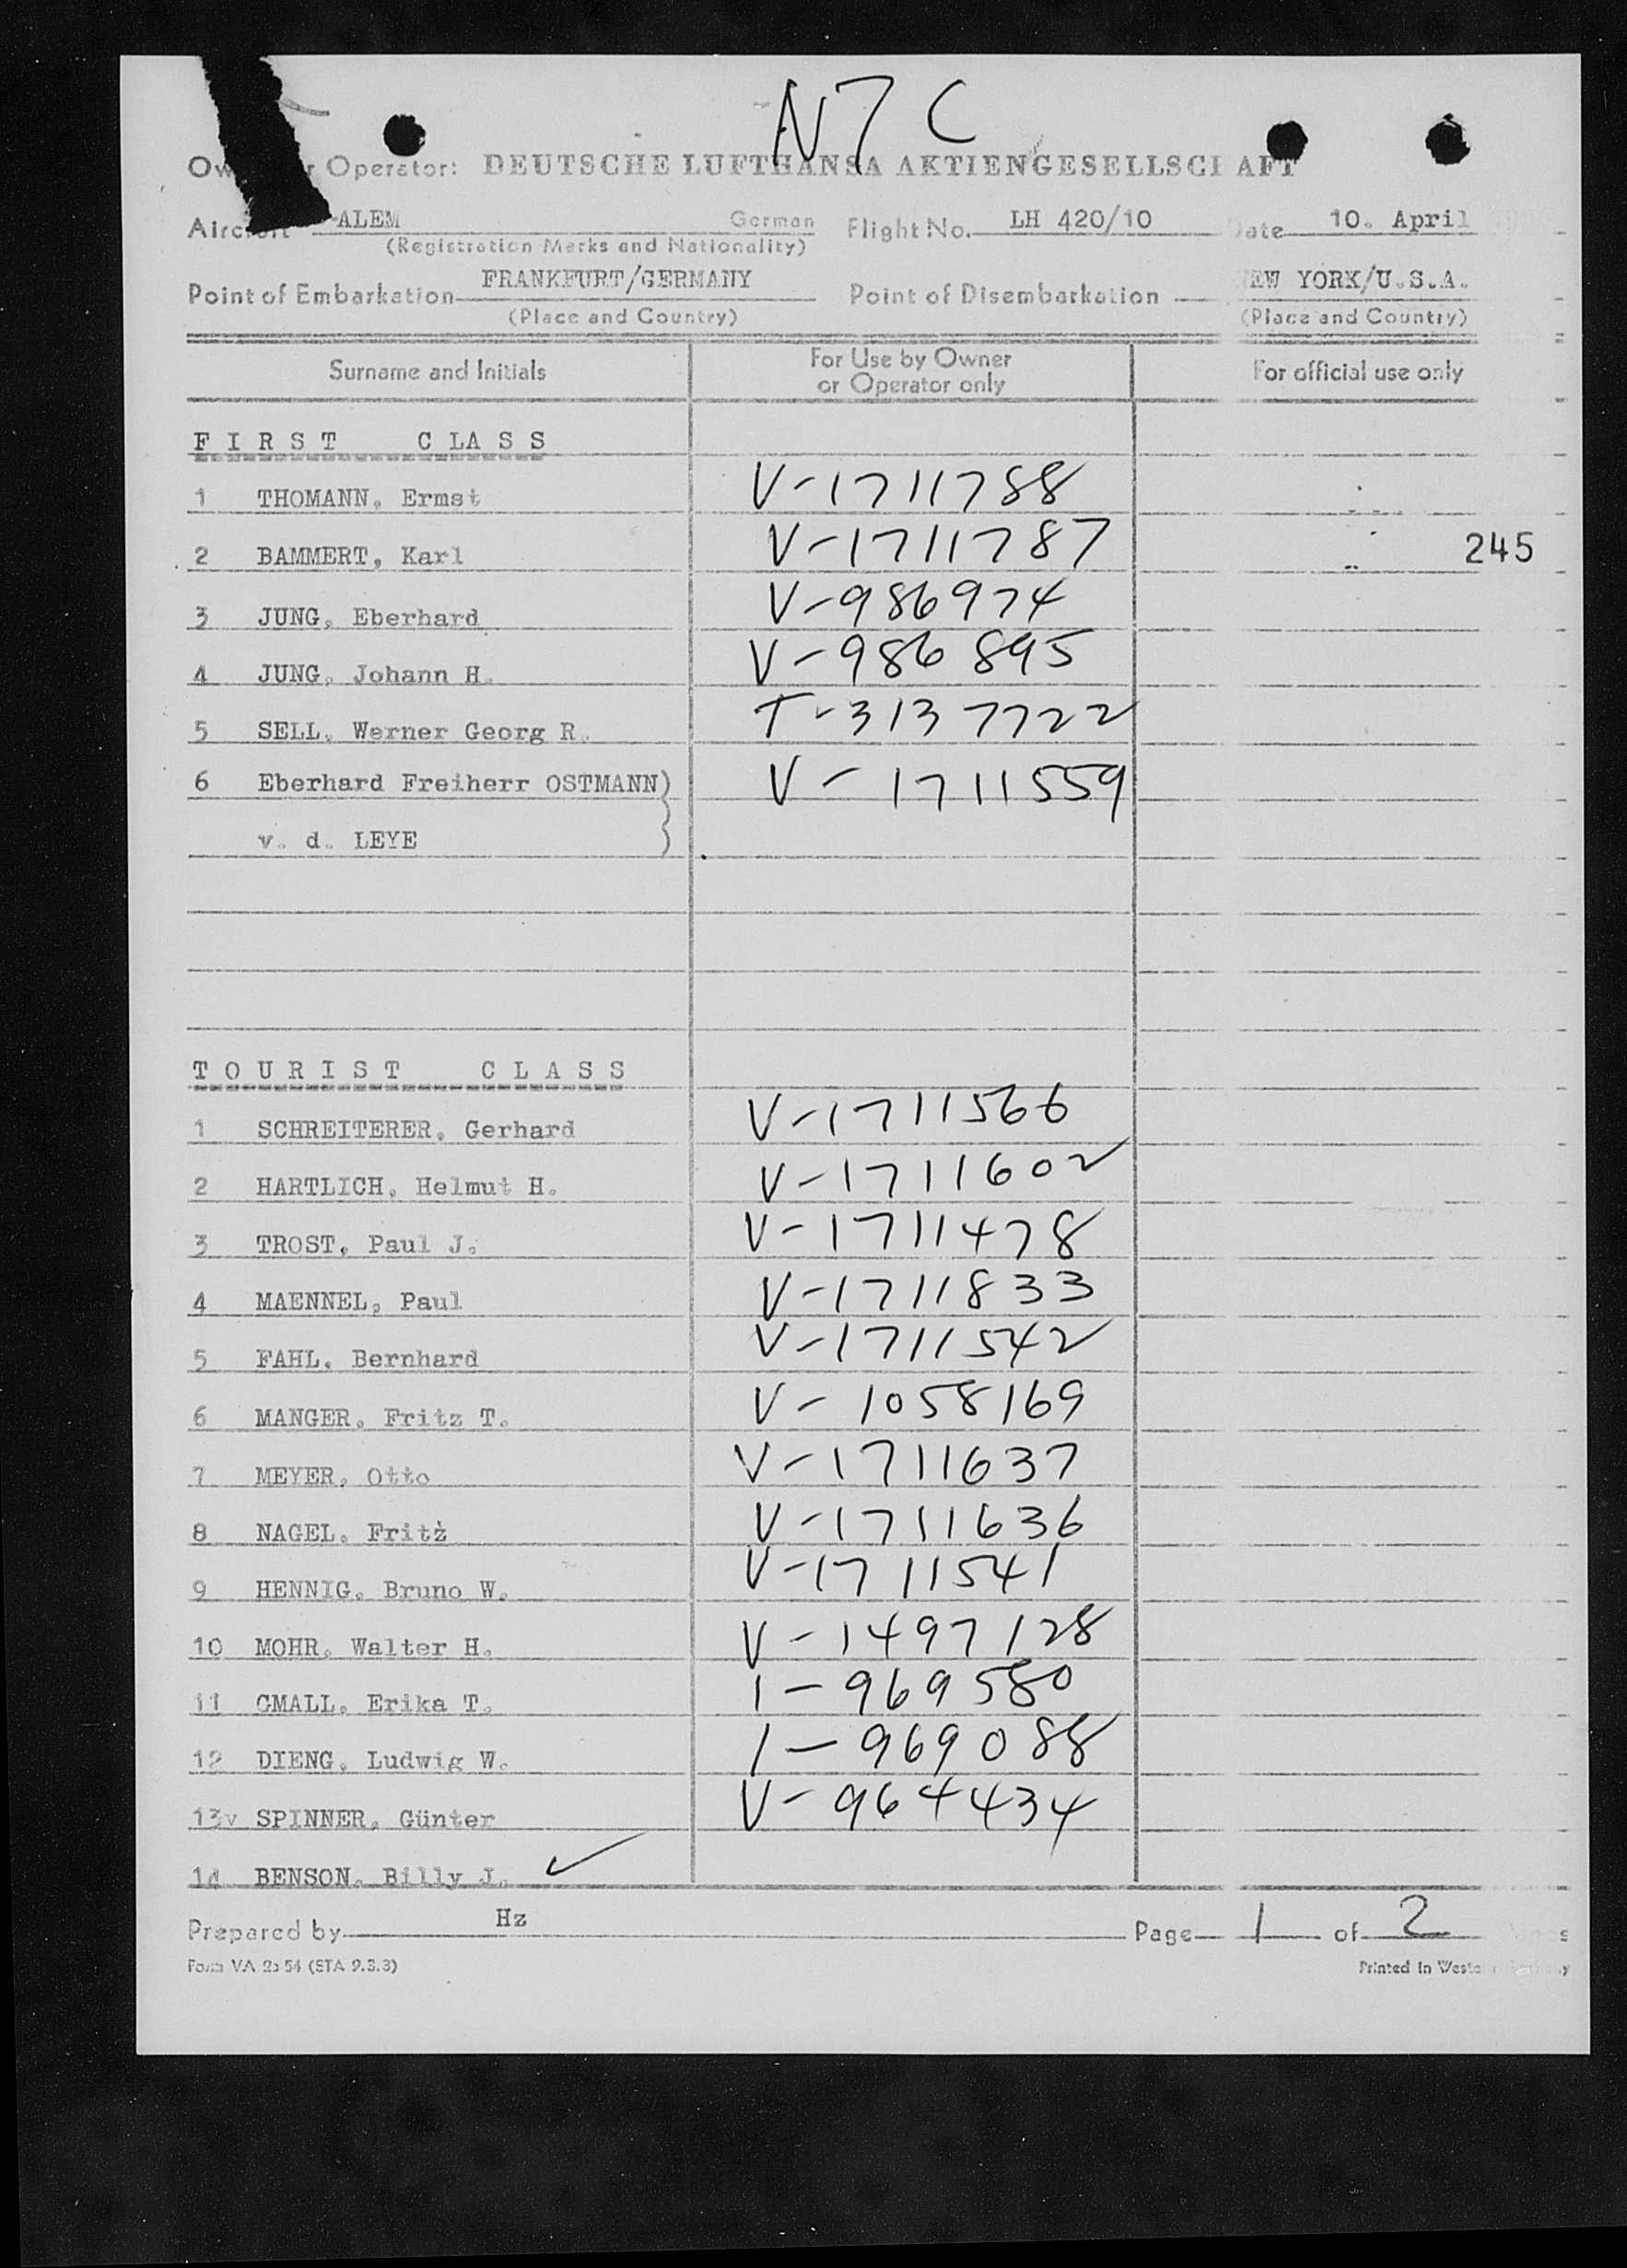 N7C
Operator: DEUTSCHE LUFTHANSA AKTIENGESELLSCHAFT
Aircraft ALEM German Flight No. LH 420/10 Date 10. April
(Registration Marks and Nationality)
Point of Embarkation FRANKFURT/GERMANY Point of Disembarkation NEW YORK/U.S.A.
(Place and Country) (Place and Country)
Surname and Initials For Use by Owner or Operator only For official use only
FIRST CLASS
1 THOMANN, Ermst V-1711788
2 BAMMERT, Karl V-1711787 245
3 JUNG, Eberhard V-986974
4 JUNG, Johann H. V-986895
5 SELL, Werner Georg R. T-3137722
6 Eberhard Freiherr OSTMANN) V-1711559
v. d. LEYE )
TOURIST CLASS
1 SCHREITERER, Gerhard V-1711566
2 HARTLICH, Helmut H. V-1711602
3 TROST, Paul J. V-1711478
4 MAENNEL, Paul V-1711833
5 FAHL, Bernhard V-1711542
6 MANGER, Fritz T. V-1058169
7 MEYER, Otto V-1711637
8 NAGEL, Fritz V-1711636
9 HENNIG, Bruno W. V-1711541
10 MOHR, Walter H. V-1497128
11 GMALL, Erika T. 1-969580
12 DIENG, Ludwig W. 1-969088
13v SPINNER, Günter V-964434
14 BENSON, Billy J. ✓
Prepared by Hz Page 1 of 2
Form VA 2a 54 (STA 9.3.3) Printed in